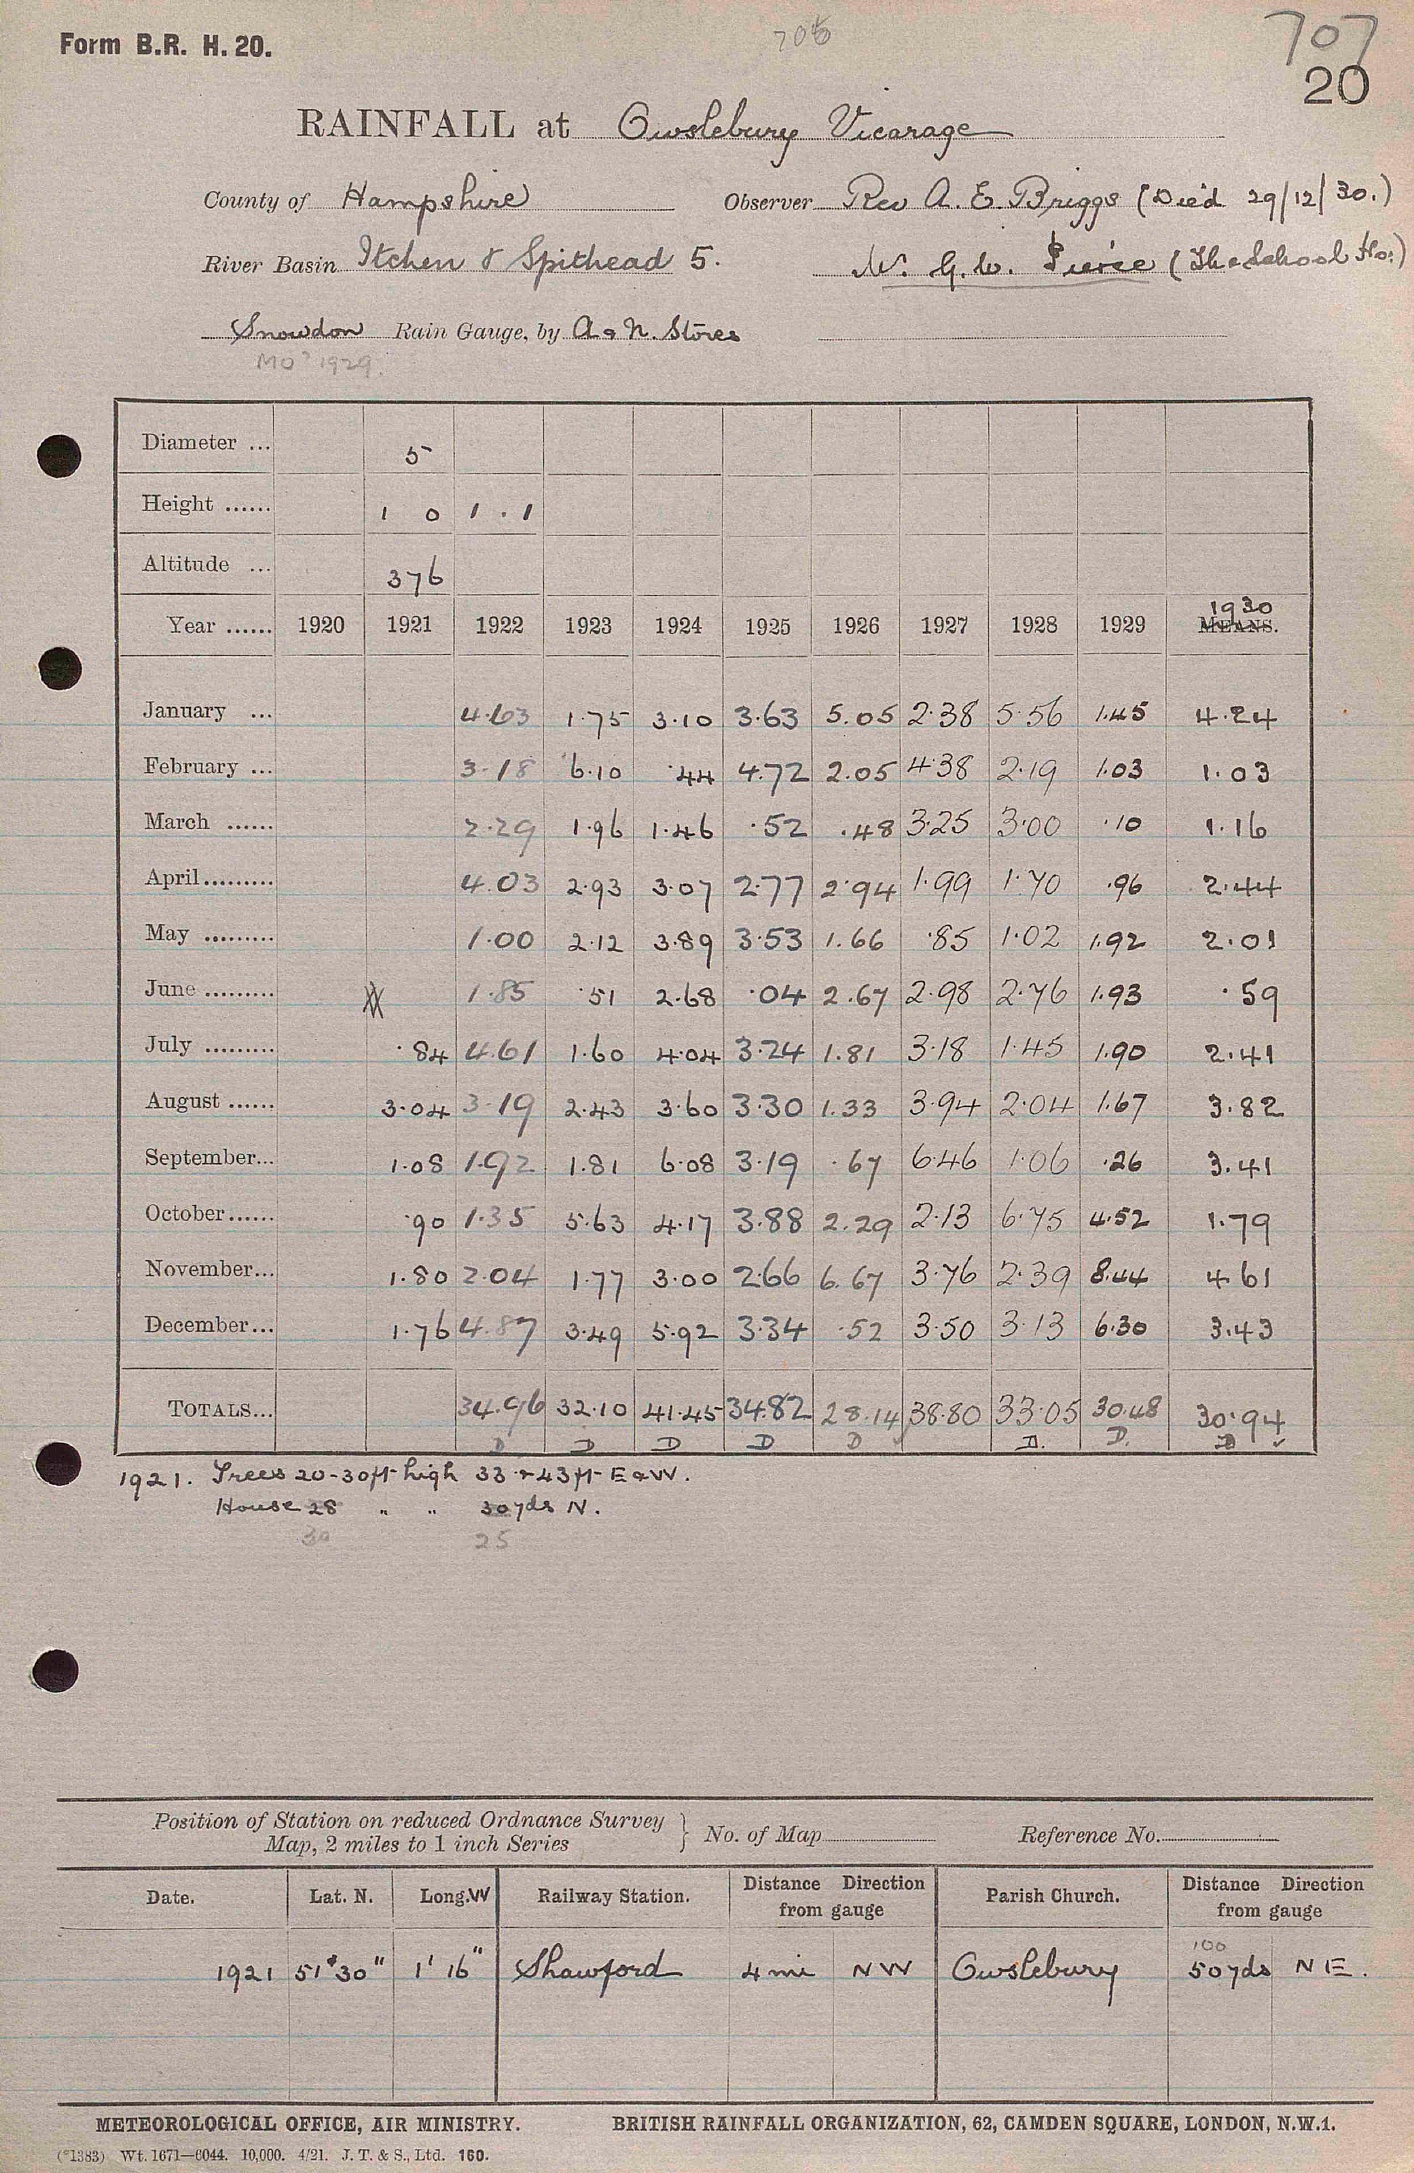 Form B.R. H. 20.
707
20
RAINFALL at Owslebury Vicarage
County of Hampshire Observer Rev A. E. Briggs (Died 29/12/30.)
River Basin Itchen & Spithead 5. G. W. Pierce (The School Ho:)
Snowdon Rain Gauge, by A & N. Stores
MO 1929.
Diameter ... 5
Height ...... 1 0 1 . 1
Altitude ... 376
Year ...... 1920 1921 1922 1923 1924 1925 1926 1927 1928 1929 1930 MEANS.
January ... 4.63 1.75 3.10 3.63 5.05 2.38 5.56 1.45 4.24
February ... 3.18 6.10 .44 4.72 2.05 4.38 2.19 1.03 1.03
March ...... 2.29 1.96 1.46 .52 .48 3.25 3.00 .10 1.16
April......... 4.03 2.93 3.07 2.77 2.94 1.99 1.70 .96 2.44
May ......... 1.00 2.12 3.89 3.53 1.66 .85 1.02 1.92 2.01
June ......... 1.85 .51 2.68 .04 2.67 2.98 2.76 1.93 .59
July ......... .84 4.61 1.60 4.04 3.24 1.81 3.18 1.45 1.90 2.41
August ...... 3.04 3.19 2.43 3.60 3.30 1.33 3.94 2.04 1.67 3.82
September... 1.08 1.92 1.81 6.08 3.19 .67 6.46 1.06 .26 3.41
October...... .90 1.35 5.63 4.17 3.88 2.29 2.13 6.75 4.52 1.79
November... 1.80 2.04 1.77 3.00 2.66 6.67 3.76 2.39 8.44 4.61
December... 1.76 4.87 3.49 5.92 3.34 .52 3.50 3.13 6.30 3.43
TOTALS... 34.96 32.10 41.45 34.82 28.14 38.80 33.05 30.48 30.94
D D D D D D. D. D
1921. Trees 20-30ft high 33 & 43 ft E & W.
House 28 " " 30 yds N.
30 25
Position of Station on reduced Ordnance Survey
Map, 2 miles to 1 inch Series } No. of Map Reference No.
Date. Lat. N. Long. W Railway Station. Distance Direction from gauge Parish Church. Distance Direction from gauge
100
1921 51° 30" 1' 16" Shawford 4 mi NW Owslebury 50 yds NE.
METEOROLOGICAL OFFICE, AIR MINISTRY. BRITISH RAINFALL ORGANIZATION, 62, CAMDEN SQUARE, LONDON, N.W.1.
(*1383) Wt. 1671—6044. 10,000. 4/21. J. T. & S., Ltd. 160.